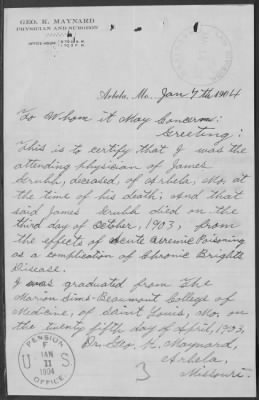 GEO. K. MAYNARD
PHYSICIAN AND SURGEON
OFFICE HOURS
Arbela, Mo. Jan 7th 1904
To Whom it May Concern:
Greeting:
This is to certify that I was the
attending physician of James
Grubb, deceased, of Arbela, Mo, at
the time of his death; And that
said James Grubb died on the
third day of October, 1903, from
the effects of Acute Uremic Poisoning
as a complication of Chronic Brights
Disease.
I was graduated from The
Marion Sims-Beaumont College of
Medicine, of Saint Louis, Mo, on
the twenty fifth day of April, 1903.
Dr. Geo. K. Maynard,
Arbela,
Missouri.
3
PENSION
F
U JAN 11 1904 S
OFFICE